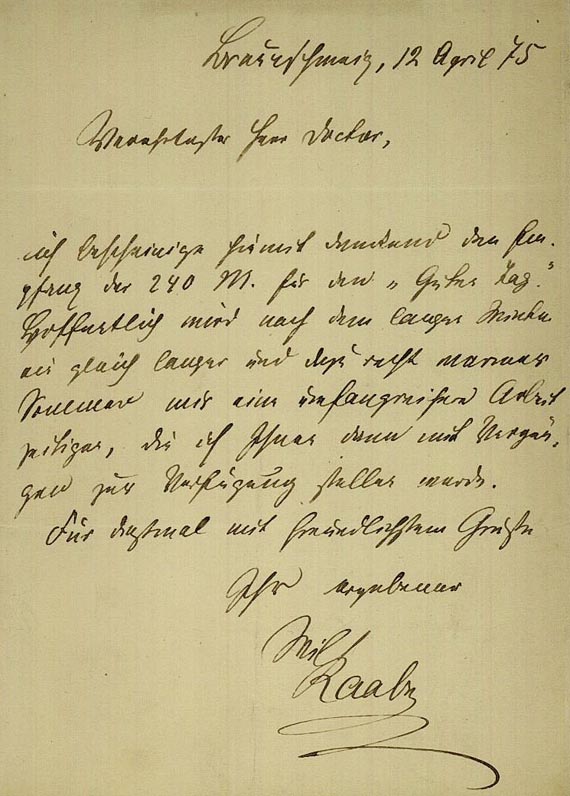 Braunschweig, 12 April 75
Verehrtester Herr Doctor,
ich bescheinige hiemit dankend den Em-
pfang der 240 M. für den „Guten Tag.“
Hoffentlich wird nach dem langen Winter
ein gleich langer und dazu recht warmer
Sommer mir eine umfangreichere Arbeit
zeitigen, die ich Ihnen dann mit Vergnü-
gen zur Verfügung stellen werde.
Für diesmal mit freundlichstem Gruße
Ihr ergebener
Wilh
Raabe